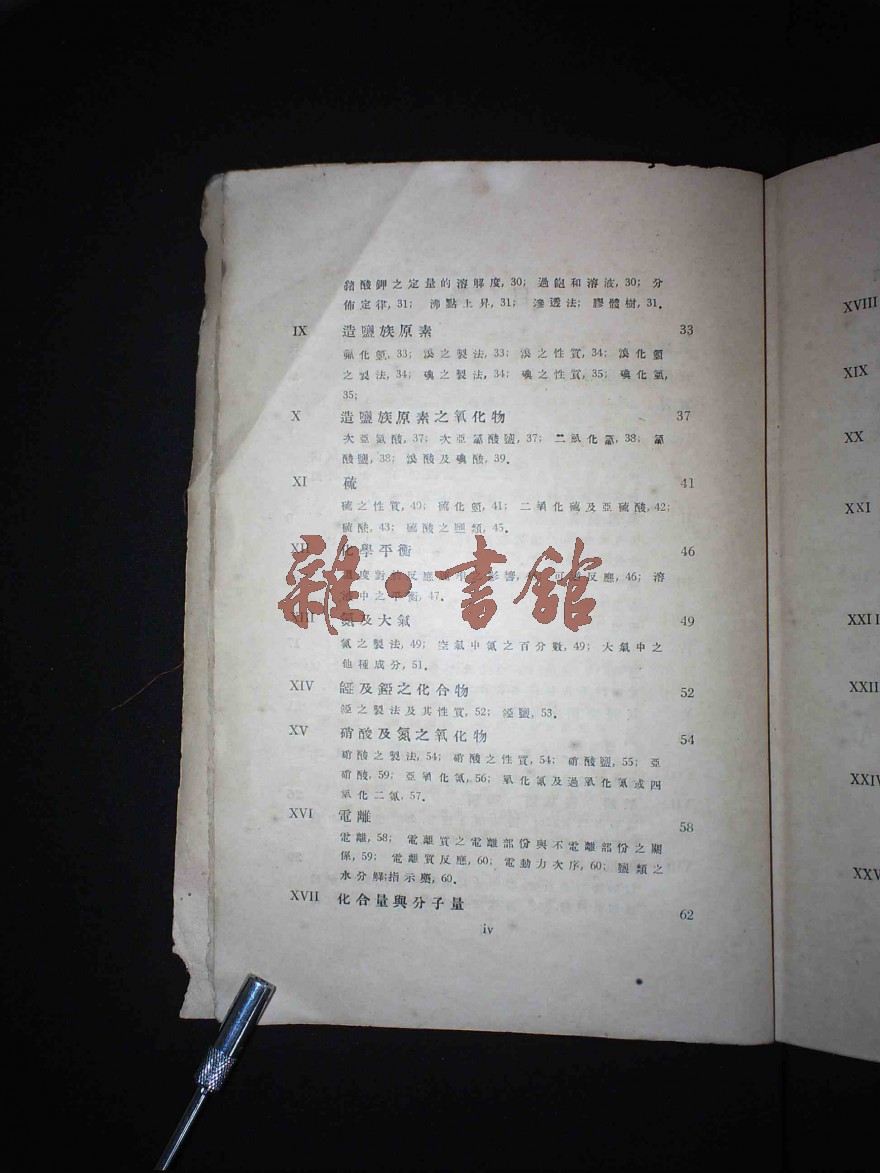 酸鉀之定量的溶解度, 30; 過飽和溶液, 30; 分
佈定律, 31; 沸點上昇, 31; 滲透法; 膠體樹, 31.
IX 造鹽族原素 33
氟化氫, 33; 溴之製法, 33; 溴之性質, 34; 溴化氫
之製法, 34; 碘之製法, 34; 碘之性質, 35; 碘化氫,
35;
X 造鹽族原素之氧化物 37
次亞氯酸, 37; 次亞氯酸鹽, 37; 二氧化氯, 38; 氯
酸鹽, 38; 溴酸及碘酸, 39.
XI 硫 41
硫之性質, 40; 硫化氫, 41; 二氧化硫及亞硫酸, 42;
硫酸, 43; 硫酸之鹽類, 45.
XII 化學平衡 46
溫度對於反應 之影響, 可逆反應, 46; 溶
液中之平衡, 47.
XIII 氮及大氣 49
氮之製法, 49; 空氣中氮之百分數, 49; 大氣中之
他種成分, 51.
XIV 及之化合物 52
之製法及其性質, 52; 鹽, 53.
XV 硝酸及氮之氧化物 54
硝酸之製法, 54; 硝酸之性質, 54; 硝酸鹽, 55; 亞
硝酸, 59; 亞氧化氮, 56; 氧化氮及過氧化氮或四
氧化二氮, 57.
XVI 電離 58
電離, 58; 電離質之電離部份與不電離部份之關
係, 59; 電離質反應, 60; 電動力次序, 60; 鹽類之
水分解;指示藥, 60.
XVII 化合量與分子量 62
iv
雜·書館
XVIII
XIX
XX
XXI
XXII
XXII
XXIV
XXV